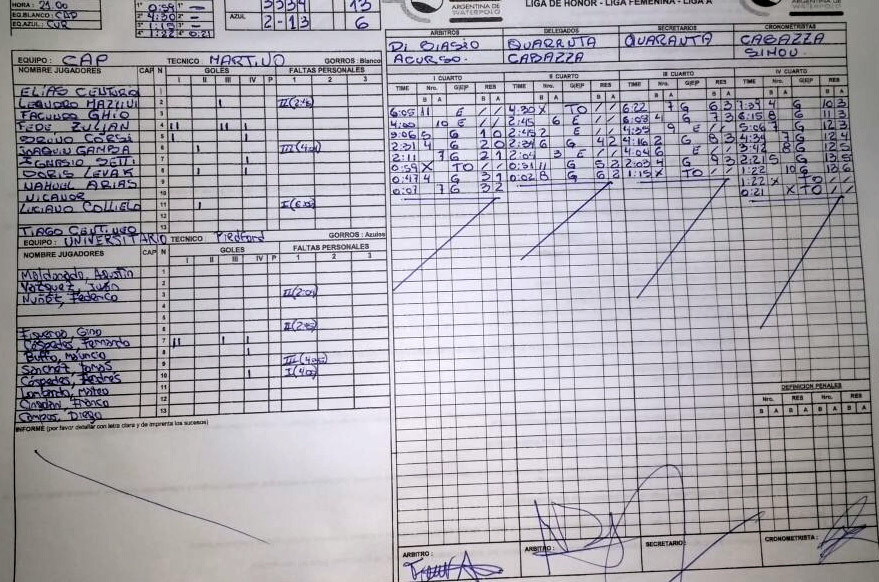 HORA : 21.00
EQ.BLANCO : CAP
EQ.AZUL : CUR
1° 0:59 1° —
2° 4:30 2° =
3° 1:15 3° =
4° 1:22 4° 0:21
3334 13
AZUL 2-13 6
ARGENTINA DE WATERPOLO
LIGA DE HONOR - LIGA FEMENINA - LIGA A
ARBITROS DELEGADOS SECRETARIOS CRONOMETRISTAS
DI BIASIO QUARRUTA QUARANTA CABAZZA
ACURSO. CABAZZA
EQUIPO : CAP TECNICO MARTINO GORROS : Blanco
NOMBRE JUGADORES CAP N GOLES FALTAS PERSONALES
I II III IV P 1 2 3
ELIAS CENTURO 1
2 II(2:45)
FACUNDO GHIO 3
FEDE. ZULIAN 4
BRUNO CORSI 5
6 III(4:04)
7
BORIS LEVAK 8
NAHUEL ARIAS 9
NICANOR 10
11
12
TIAGO 13
EQUIPO : UNIVERSITARIO TECNICO GORROS : Azules
NOMBRE JUGADORES CAP N GOLES FALTAS PERSONALES
I II III IV P 1 2 3
Maldonado, Agustin 1
Vazquez, Juan 2
Nuñez, Federico 3 II(2:04)
4
5
Gino 6 II(2:45)
Cespedes, Fernando 7
Buffo, Mauricio 8
Sanchez, Tomas 9
Cespedes, Andrés 10
Lombardo, Mateo 11
Franco 12
Campos, Diego 13
INFORME (por favor detallar con letra clara y de imprenta los sucesos)
I CUARTO II CUARTO III CUARTO IV CUARTO
TIME Nro. G|E|P RES TIME Nro. G|E|P RES TIME Nro. G|E|P RES TIME Nro. G|E|P RES
B A B A B A B A B A B A B A B A
6:05 11 E / / 4:30 X TO / / 6:22 7 G 6 3 7:34 4 G 10 3
4:00 10 E / / 2:45 6 E / / 6:03 4 G 7 3 6:15 8 G 11 3
3:06 5 G 1 0 2:45 2 E / / 4:35 9 E / / 5:06 7 G 12 3
2:31 4 G 2 0 2:34 6 G 4 2 4:16 2 G 8 3 4:34 7 G 12 4
2:11 7 G 2 1 2:04 3 E / / 4:04 6 E / / 3:42 8 G 12 5
0:59 X TO / / 0:31 11 G 5 2 2:03 4 G 9 3 2:21 5 G 13 5
0:47 4 G 3 1 0:02 8 G 6 2 1:15 X TO / / 1:22 10 G 13 6
0:07 7 G 3 2 1:22 X TO / /
0:21 X TO / /
DEFINICION PENALES
Nro. RES Nro. RES
B A B A B A B A
ARBITRO : ARBITRO : SECRETARIO : CRONOMETRISTA :